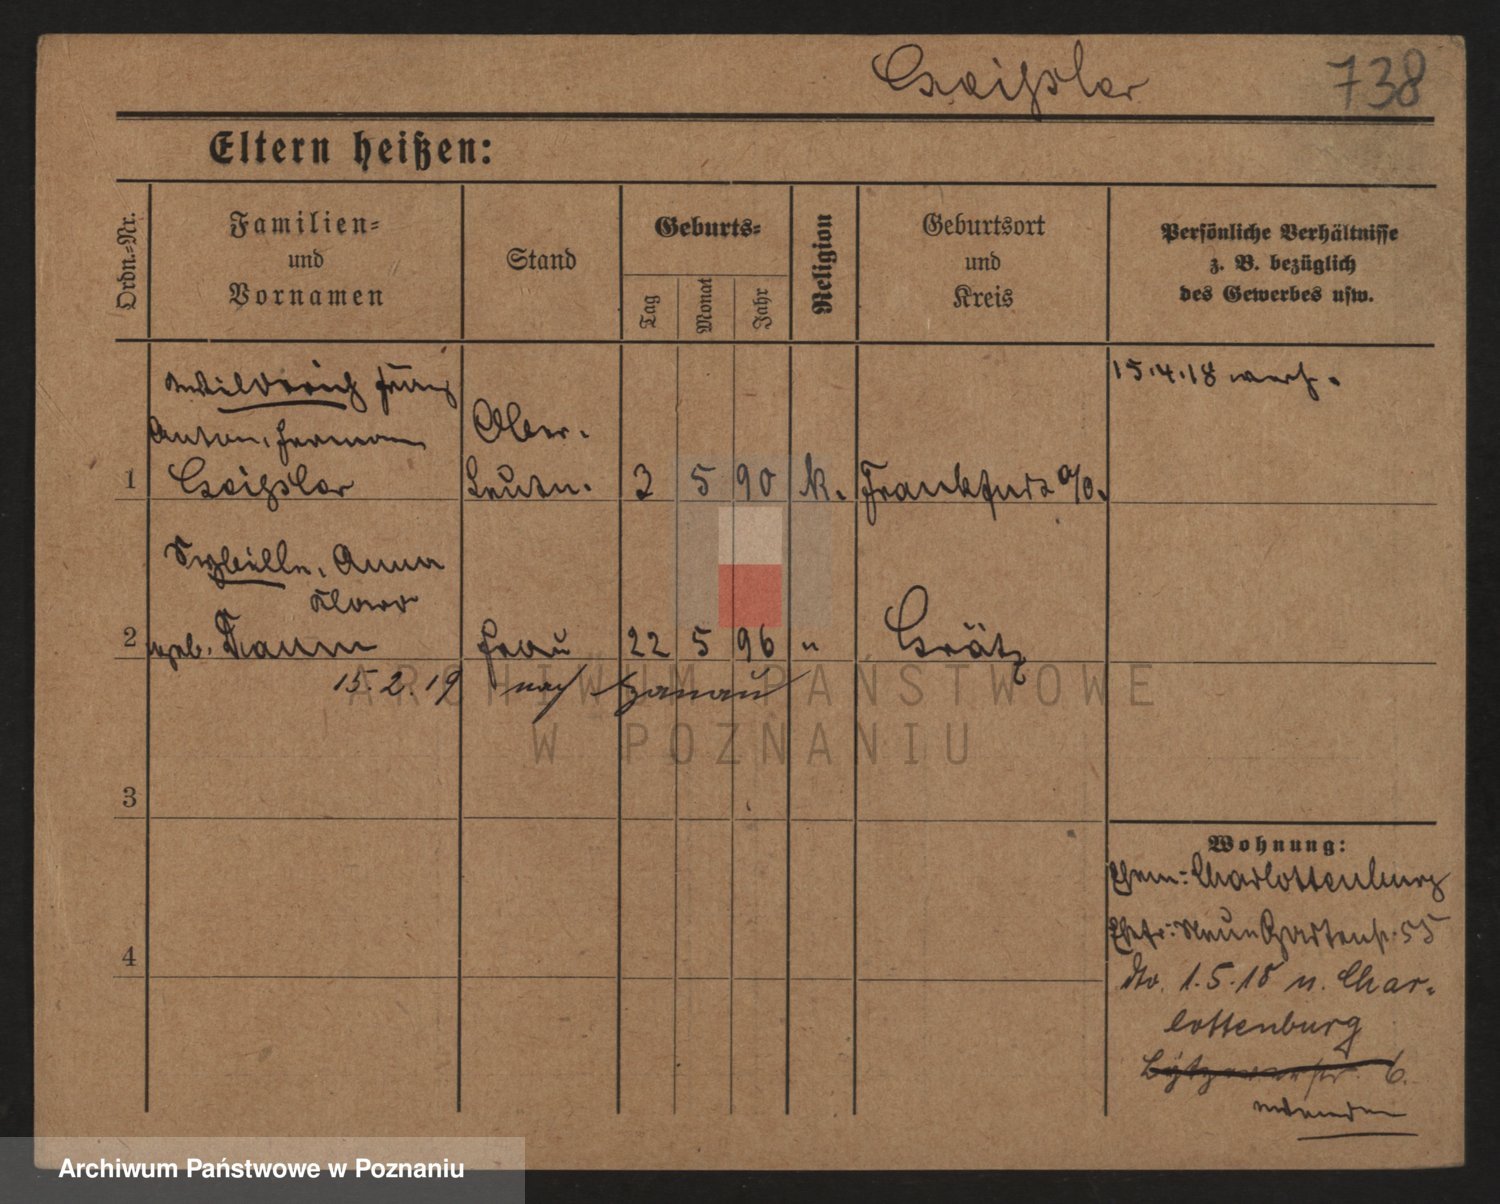 Geißler 738
Eltern heißen:
Ordn.-Nr.
Familien-
und
Vornamen
Stand
Geburts-
Tag
Monat
Jahr
Religion
Geburtsort
und
Kreis
Persönliche Verhältnisse
z. B. bezüglich
des Gewerbes usw.
15.4.18 verh.
Franz
Anton, Hermann Ober-
1 Geißler Leutn. 3 5 90 k. Frankfurt a/O.
Sybille, Anna
Klara
2 geb. Daum Frau 22 5 96 " Grätz
15.2.19 nach Hanau
3
4
Wohnung:
Ehem: Charlottenburg
Ehefr: Neue Gartenstr. 55
1.5.18 n. Char-
lottenburg
6.
ARCHIWUM PAŃSTWOWE
W POZNANIU
Archiwum Państwowe w Poznaniu